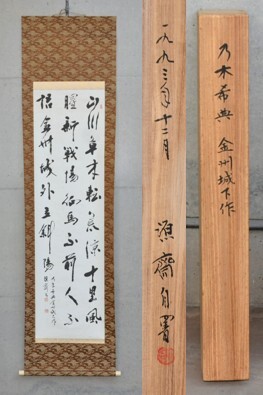 山川草木転荒涼十里風
腥新戦場征馬不前人不
語金州城外立斜陽
一九九三年十二月
源齋自署
乃木希典 金州城下作